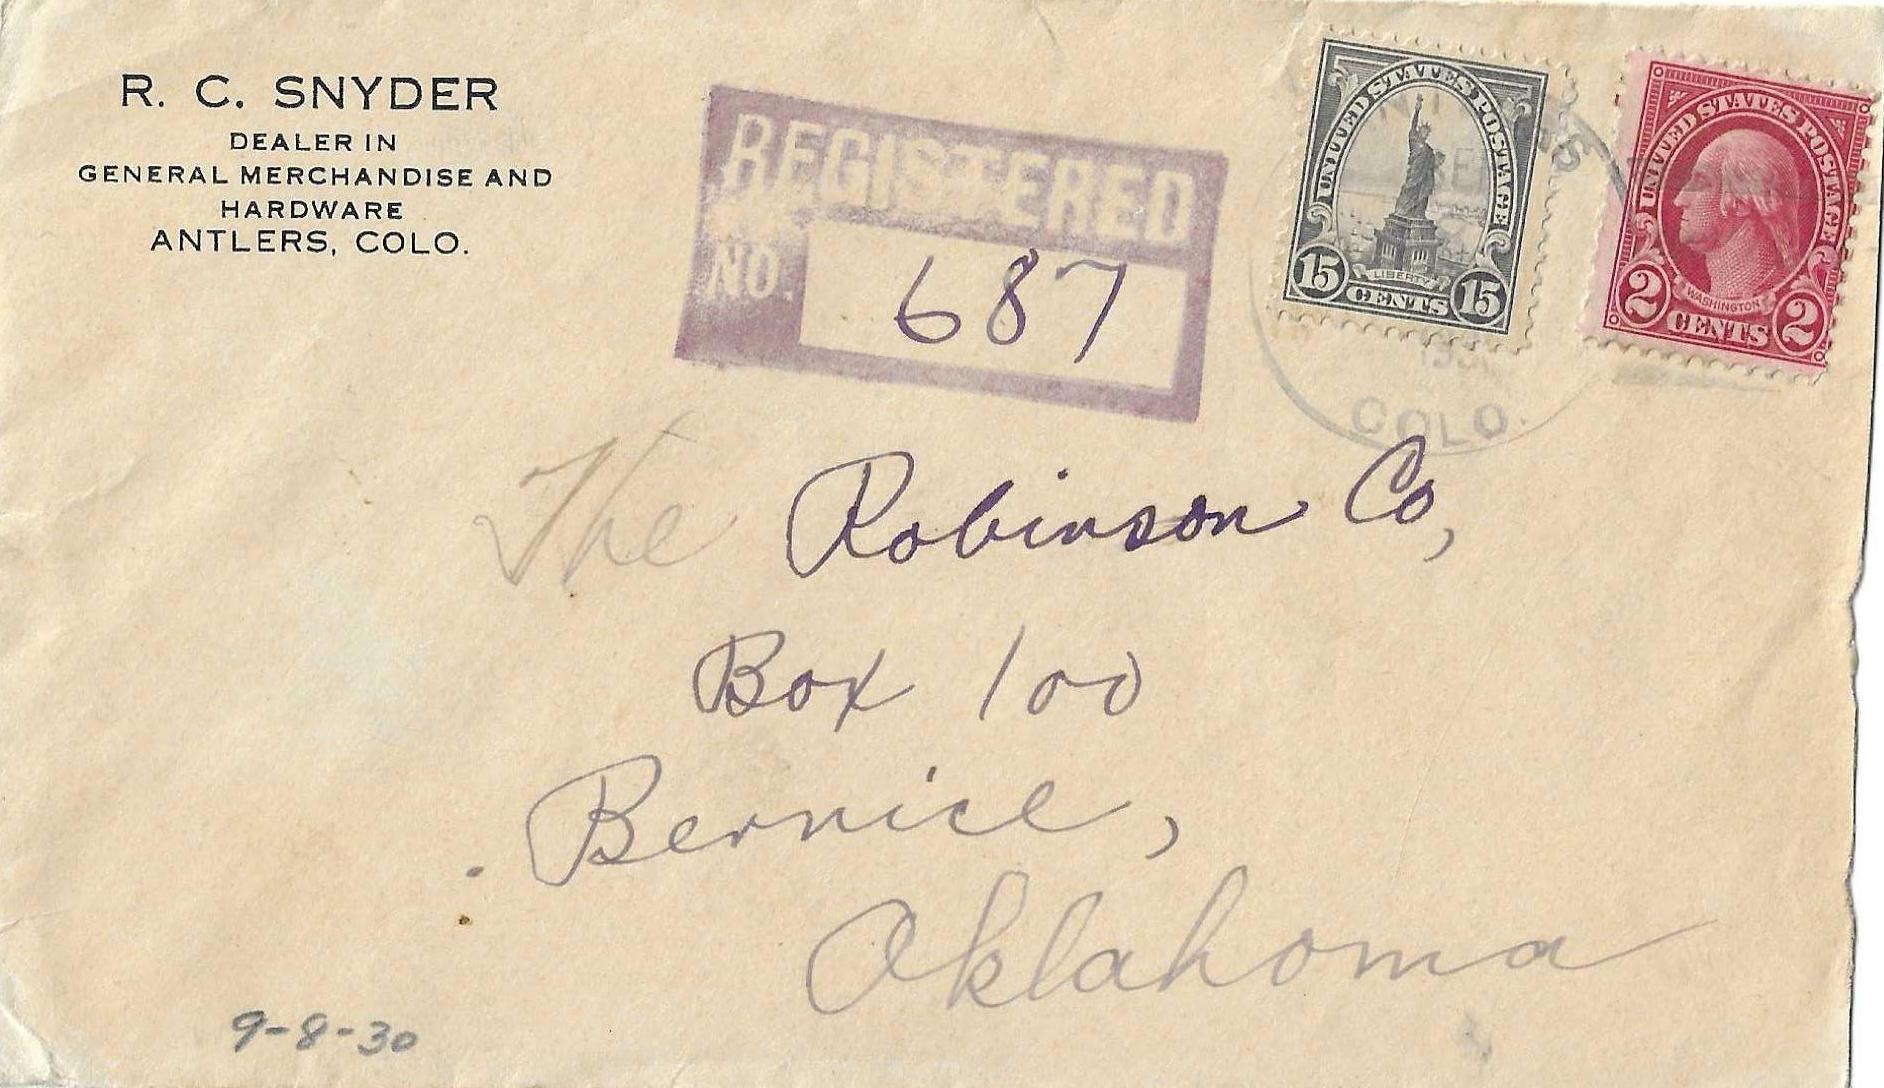 R. C. SNYDER
DEALER IN
GENERAL MERCHANDISE AND
HARDWARE
ANTLERS, COLO.
REGISTERED
NO. 687
UNITED STATES POSTAGE
LIBERTY
15 CENTS 15
UNITED STATES POSTAGE
WASHINGTON
2 CENTS 2
COLO.
The Robinson Co,
Box 100
Bernice,
Oklahoma
9-8-30